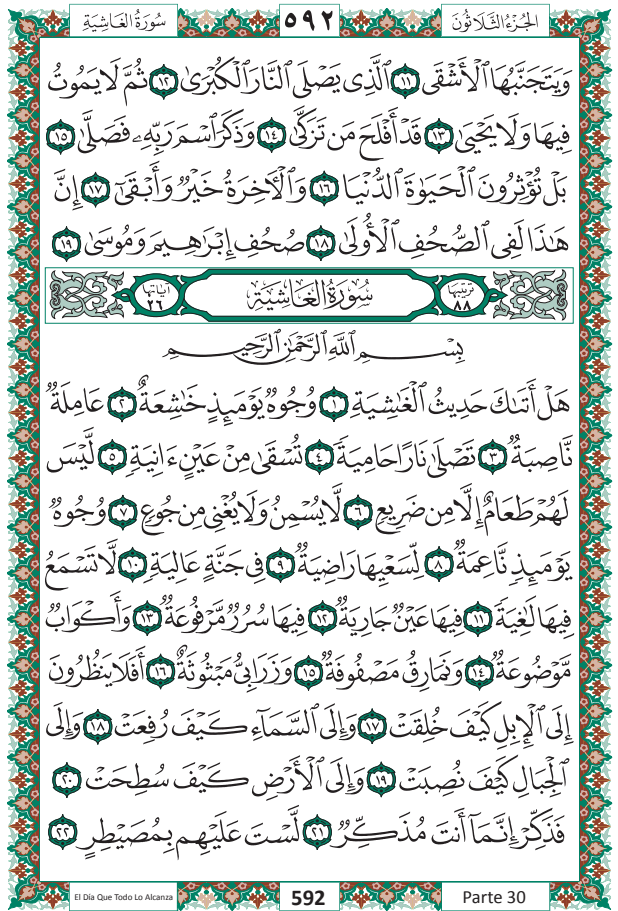 سُورَةُ الغَاشِيَةِ ٥٩٢ الجُزْءُ الثَّلَاثُونَ
وَيَتَجَنَّبُهَا ٱلْأَشْقَى ١١ ٱلَّذِى يَصْلَى ٱلنَّارَ ٱلْكُبْرَىٰ ١٢ ثُمَّ لَا يَمُوتُ
فِيهَا وَلَا يَحْيَىٰ ١٣ قَدْ أَفْلَحَ مَن تَزَكَّىٰ ١٤ وَذَكَرَ ٱسْمَ رَبِّهِۦ فَصَلَّىٰ ١٥
بَلْ تُؤْثِرُونَ ٱلْحَيَوٰةَ ٱلدُّنْيَا ١٦ وَٱلْأَخِرَةُ خَيْرٌ وَأَبْقَىٰٓ ١٧ إِنَّ
هَٰذَا لَفِى ٱلصُّحُفِ ٱلْأُولَىٰ ١٨ صُحُفِ إِبْرَٰهِيمَ وَمُوسَىٰ ١٩
ترتيبها ٨٨ سُورَةُ الغَاشِيَةِ آياتها ٢٦
بِسْمِ ٱللَّهِ ٱلرَّحْمَٰنِ ٱلرَّحِيمِ
هَلْ أَتَىٰكَ حَدِيثُ ٱلْغَٰشِيَةِ ١ وُجُوهٌ يَوْمَئِذٍ خَٰشِعَةٌ ٢ عَامِلَةٌ
نَّاصِبَةٌ ٣ تَصْلَىٰ نَارًا حَامِيَةً ٤ تُسْقَىٰ مِنْ عَيْنٍ ءَانِيَةٍ ٥ لَّيْسَ
لَهُمْ طَعَامٌ إِلَّا مِن ضَرِيعٍ ٦ لَّا يُسْمِنُ وَلَا يُغْنِى مِن جُوعٍ ٧ وُجُوهٌ
يَوْمَئِذٍ نَّاعِمَةٌ ٨ لِّسَعْيِهَا رَاضِيَةٌ ٩ فِى جَنَّةٍ عَالِيَةٍ ١٠ لَّا تَسْمَعُ
فِيهَا لَٰغِيَةً ١١ فِيهَا عَيْنٌ جَارِيَةٌ ١٢ فِيهَا سُرُرٌ مَّرْفُوعَةٌ ١٣ وَأَكْوَابٌ
مَّوْضُوعَةٌ ١٤ وَنَمَارِقُ مَصْفُوفَةٌ ١٥ وَزَرَابِىُّ مَبْثُوثَةٌ ١٦ أَفَلَا يَنظُرُونَ
إِلَى ٱلْإِبِلِ كَيْفَ خُلِقَتْ ١٧ وَإِلَى ٱلسَّمَآءِ كَيْفَ رُفِعَتْ ١٨ وَإِلَى
ٱلْجِبَالِ كَيْفَ نُصِبَتْ ١٩ وَإِلَى ٱلْأَرْضِ كَيْفَ سُطِحَتْ ٢٠
فَذَكِّرْ إِنَّمَآ أَنتَ مُذَكِّرٌ ٢١ لَّسْتَ عَلَيْهِم بِمُصَيْطِرٍ ٢٢
El Día Que Todo Lo Alcanza 592 Parte 30